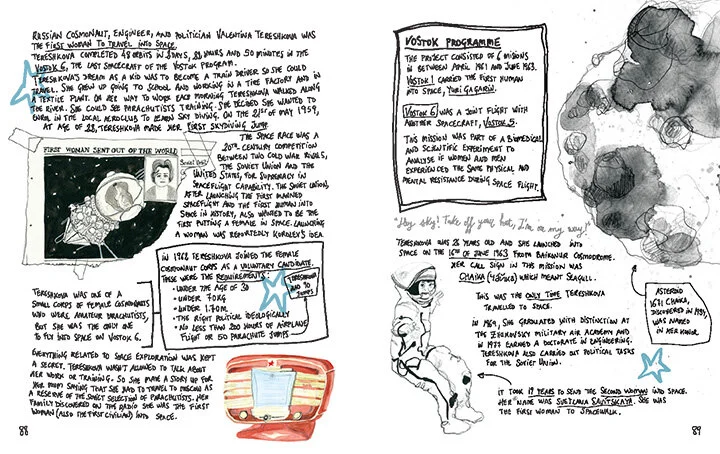 RUSSIAN COSMONAUT, ENGINEER, AND POLITICIAN VALENTINA TERESHKOVA WAS
THE FIRST WOMAN TO TRAVEL INTO SPACE.
TERESHKOVA COMPLETED 48 ORBITS IN 2 DAYS, 22 HOURS AND 50 MINUTES IN THE
VOSTOK 6, THE LAST SPACECRAFT OF THE VOSTOK PROGRAM.
TERESHKOVA'S DREAM AS A KID WAS TO BECOME A TRAIN DRIVER SO SHE COULD
TRAVEL. SHE GREW UP GOING TO SCHOOL AND WORKING IN A TIRE FACTORY AND IN
A TEXTILE PLANT. ON HER WAY TO WORK EACH MORNING TERESHKOVA WALKED ALONG
THE RIVER. SHE COULD SEE PARACHUTISTS TRAINING. SHE DECIDED SHE WANTED TO
ENROL IN THE LOCAL AEROCLUB TO LEARN SKY DIVING. ON THE 21ST OF MAY 1959,
AT AGE OF 22, TERESHKOVA MADE HER FIRST SKYDIVING JUMP
FIRST WOMAN SENT OUT OF THE WORLD
THE SPACE RACE WAS A
20TH CENTURY COMPETITION
BETWEEN TWO COLD WAR RIVALS,
THE SOVIET UNION AND THE
UNITED STATES, FOR SUPREMACY IN
SPACEFLIGHT CAPABILITY. THE SOVIET UNION,
AFTER LAUNCHING THE FIRST MANNED
SPACEFLIGHT AND THE FIRST HUMAN INTO
SPACE IN HISTORY, ALSO WANTED TO BE THE
FIRST PUTTING A FEMALE IN SPACE. LAUNCHING
A WOMAN WAS REPORTEDLY KOROLEV'S IDEA
IN 1962 TERESHKOVA JOINED THE FEMALE
COSMONAUT CORPS AS A VOLUNTARY CANDIDATE.
THESE WERE THE REQUIREMENTS:
· UNDER THE AGE OF 30
· UNDER 70KG
· UNDER 1.70M
· THE RIGHT POLITICAL IDEOLOGICALLY
· NO LESS THAN 200 HOURS OF AIRPLANE
FLIGHT OR 50 PARACHUTE JUMPS
TERESHKOVA
HAD 90
JUMPS
TERESHKOVA WAS ONE OF A
SMALL CORPS OF FEMALE COSMONAUTS
WHO WERE AMATEUR PARACHUTISTS,
BUT SHE WAS THE ONLY ONE
TO FLY INTO SPACE ON VOSTOK 6.
EVERYTHING RELATED TO SPACE EXPLORATION WAS KEPT
A SECRET. TERESHKOVA WASN'T ALLOWED TO TALK ABOUT
HER WORK OR TRAINING. SO SHE MADE A STORY UP FOR
HER MUM SAYING THAT SHE HAD TO TRAVEL TO MOSCOW AS
A RESERVE OF THE SOVIET SELECTION OF PARACHUTISTS. HER
FAMILY DISCOVERED ON THE RADIO SHE WAS THE FIRST
WOMAN (ALSO THE FIRST CIVILIAN) INTO SPACE.
88
VOSTOK PROGRAMME
THE PROJECT CONSISTED OF 6 MISIONS
IN BETWEEN APRIL 1961 AND JUNE 1963.
VOSTOK 1 CARRIED THE FIRST HUMAN
INTO SPACE, YURI GAGARIN.
VOSTOK 6 WAS A JOINT FLIGHT WITH
ANOTHER SPACECRAFT, VOSTOK 5.
THIS MISSION WAS PART OF A BIOMEDICAL
AND SCIENTIFIC EXPERIMENT TO
ANALYSE IF WOMEN AND MEN
EXPERIENCED THE SAME PHYSICAL AND
MENTAL RESISTANCE DURING SPACE FLIGHT.
"Hey sky! Take off your hat, I'm on my way!"
TERESHKOVA WAS 26 YEARS OLD AND SHE LAUNCHED INTO
SPACE ON THE 16TH OF JUNE 1963 FROM BAIKONUR COSMODROME.
HER CALL SIGN IN THIS MISSION WAS
CHAIKA (Чайка) WHICH MEANT SEAGULL.
THIS WAS THE ONLY TIME TERESHKOVA
TRAVELLED TO SPACE.
IN 1969, SHE GRADUATED WITH DISTINCTION AT
THE ZHUKOVSKY MILITARY AIR ACADEMY AND
IN 1977 EARNED A DOCTORATE IN ENGINEERING.
TERESHKOVA ALSO CARRIED OUT POLITICAL TASKS
FOR THE SOVIET UNION.
ASTEROID
1671 CHAIKA,
DISCOVERED IN 1934,
WAS NAMED
IN HER HONOR
IT TOOK 19 YEARS TO SEND THE SECOND WOMAN INTO SPACE.
HER NAME WAS SVETLANA SAVITSKAYA. SHE WAS
THE FIRST WOMAN TO SPACEWALK.
89